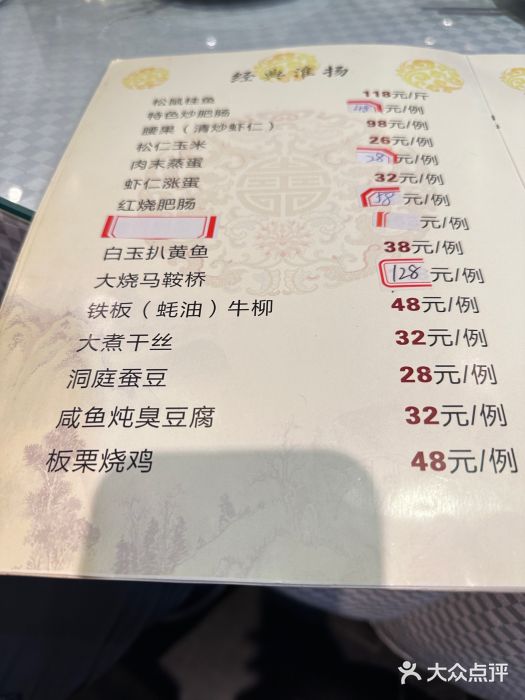 经典淮扬
松鼠桂鱼 118元/斤
特色炒肥肠 48元/例
腰果（清炒虾仁） 98元/例
松仁玉米 26元/例
肉末蒸蛋 28元/例
虾仁涨蛋 32元/例
红烧肥肠 元/例
元/例
白玉扒黄鱼 38元/例
大烧马鞍桥 128元/例
铁板（蚝油）牛柳 48元/例
大煮干丝 32元/例
洞庭蚕豆 28元/例
咸鱼炖臭豆腐 32元/例
板栗烧鸡 48元/例
大众点评